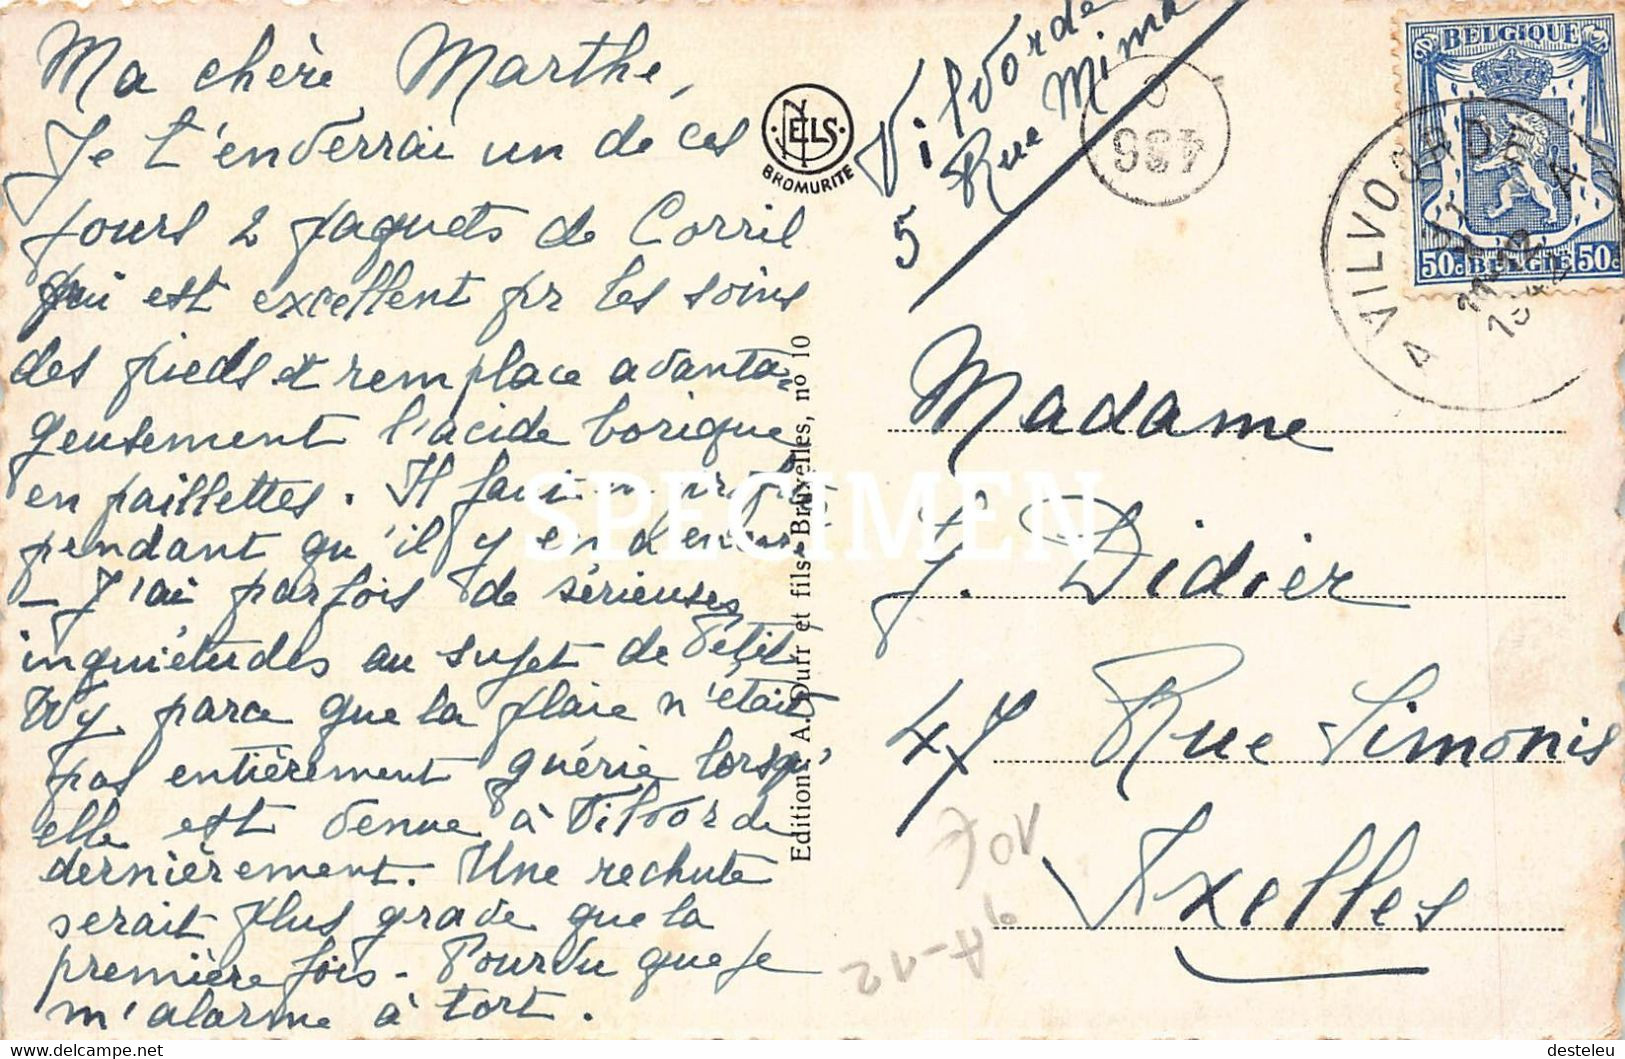 Ma chère Marthe,
Je t'enverrai un de ces
jours 2 paquets de Corril
qui est excellent pr les soins
des pieds et remplace avanta-
geusement l'acide borique
en paillettes. Il faut
pendant qu'il y en a encore
- J'ai parfois de sérieuses
inquiétudes au sujet de Petit
Wy parce que la plaie n'était
pas entièrement guérie lorsqu'
elle est venue à Vilvorde
dernièrement. Une rechute
serait plus grave que la
première fois - Pourvu que je
m'alarme à tort.
NELS
BROMURITE
Editions A. Durr et fils Bruxelles, no 10
Vilvorde
5 Rue Mima
BELGIQUE
50c BELGIE 50c
A VILVOORDE A
Madame
J. Didier
47 Rue Simonis
Ixelles
10€
A-12
SPECIMEN
delcampe.net
desteleu